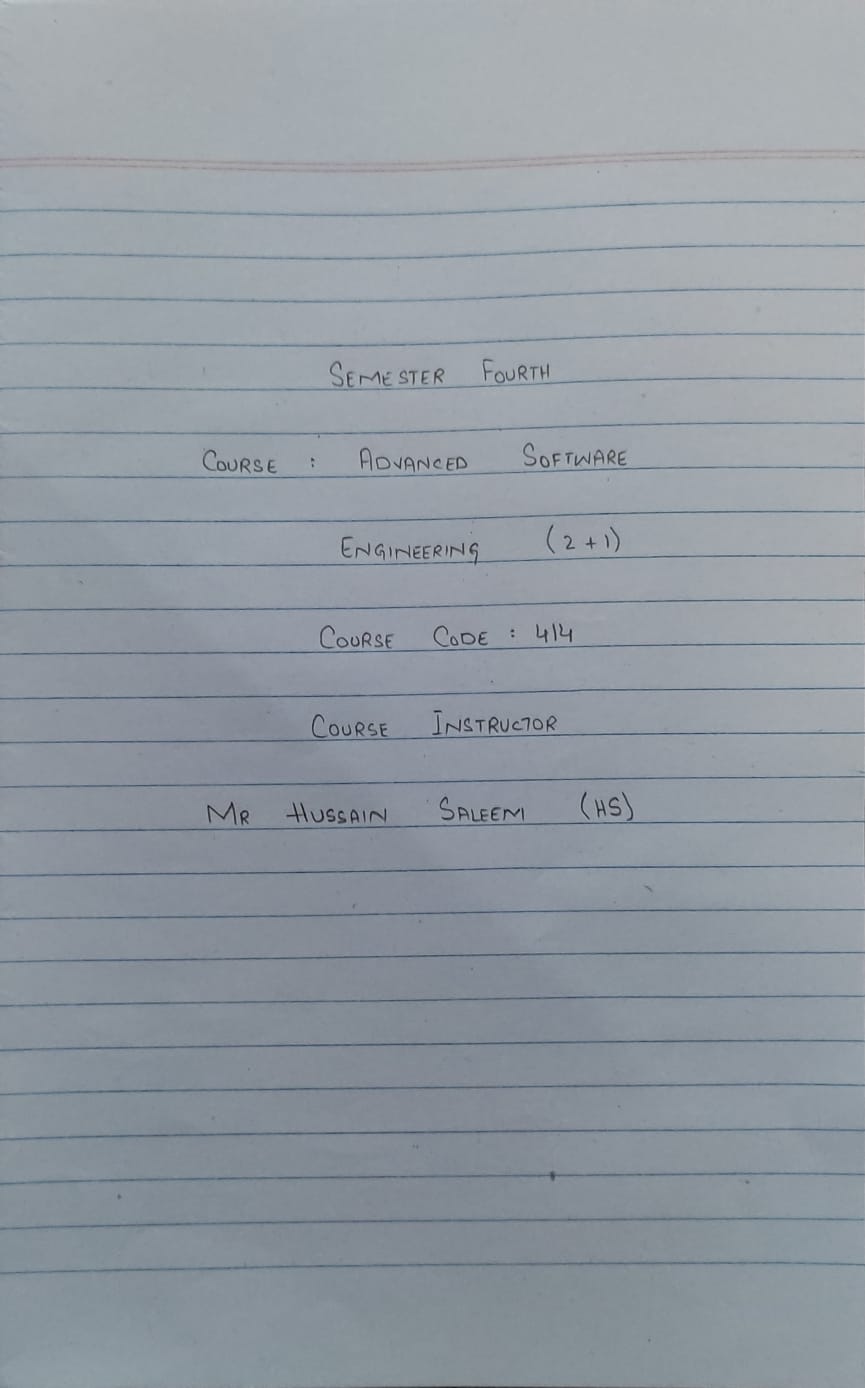 SEMESTER FOURTH
COURSE : ADVANCED SOFTWARE
ENGINEERING (2+1)
COURSE CODE : 414
COURSE INSTRUCTOR
MR HUSSAIN SALEEM (HS)